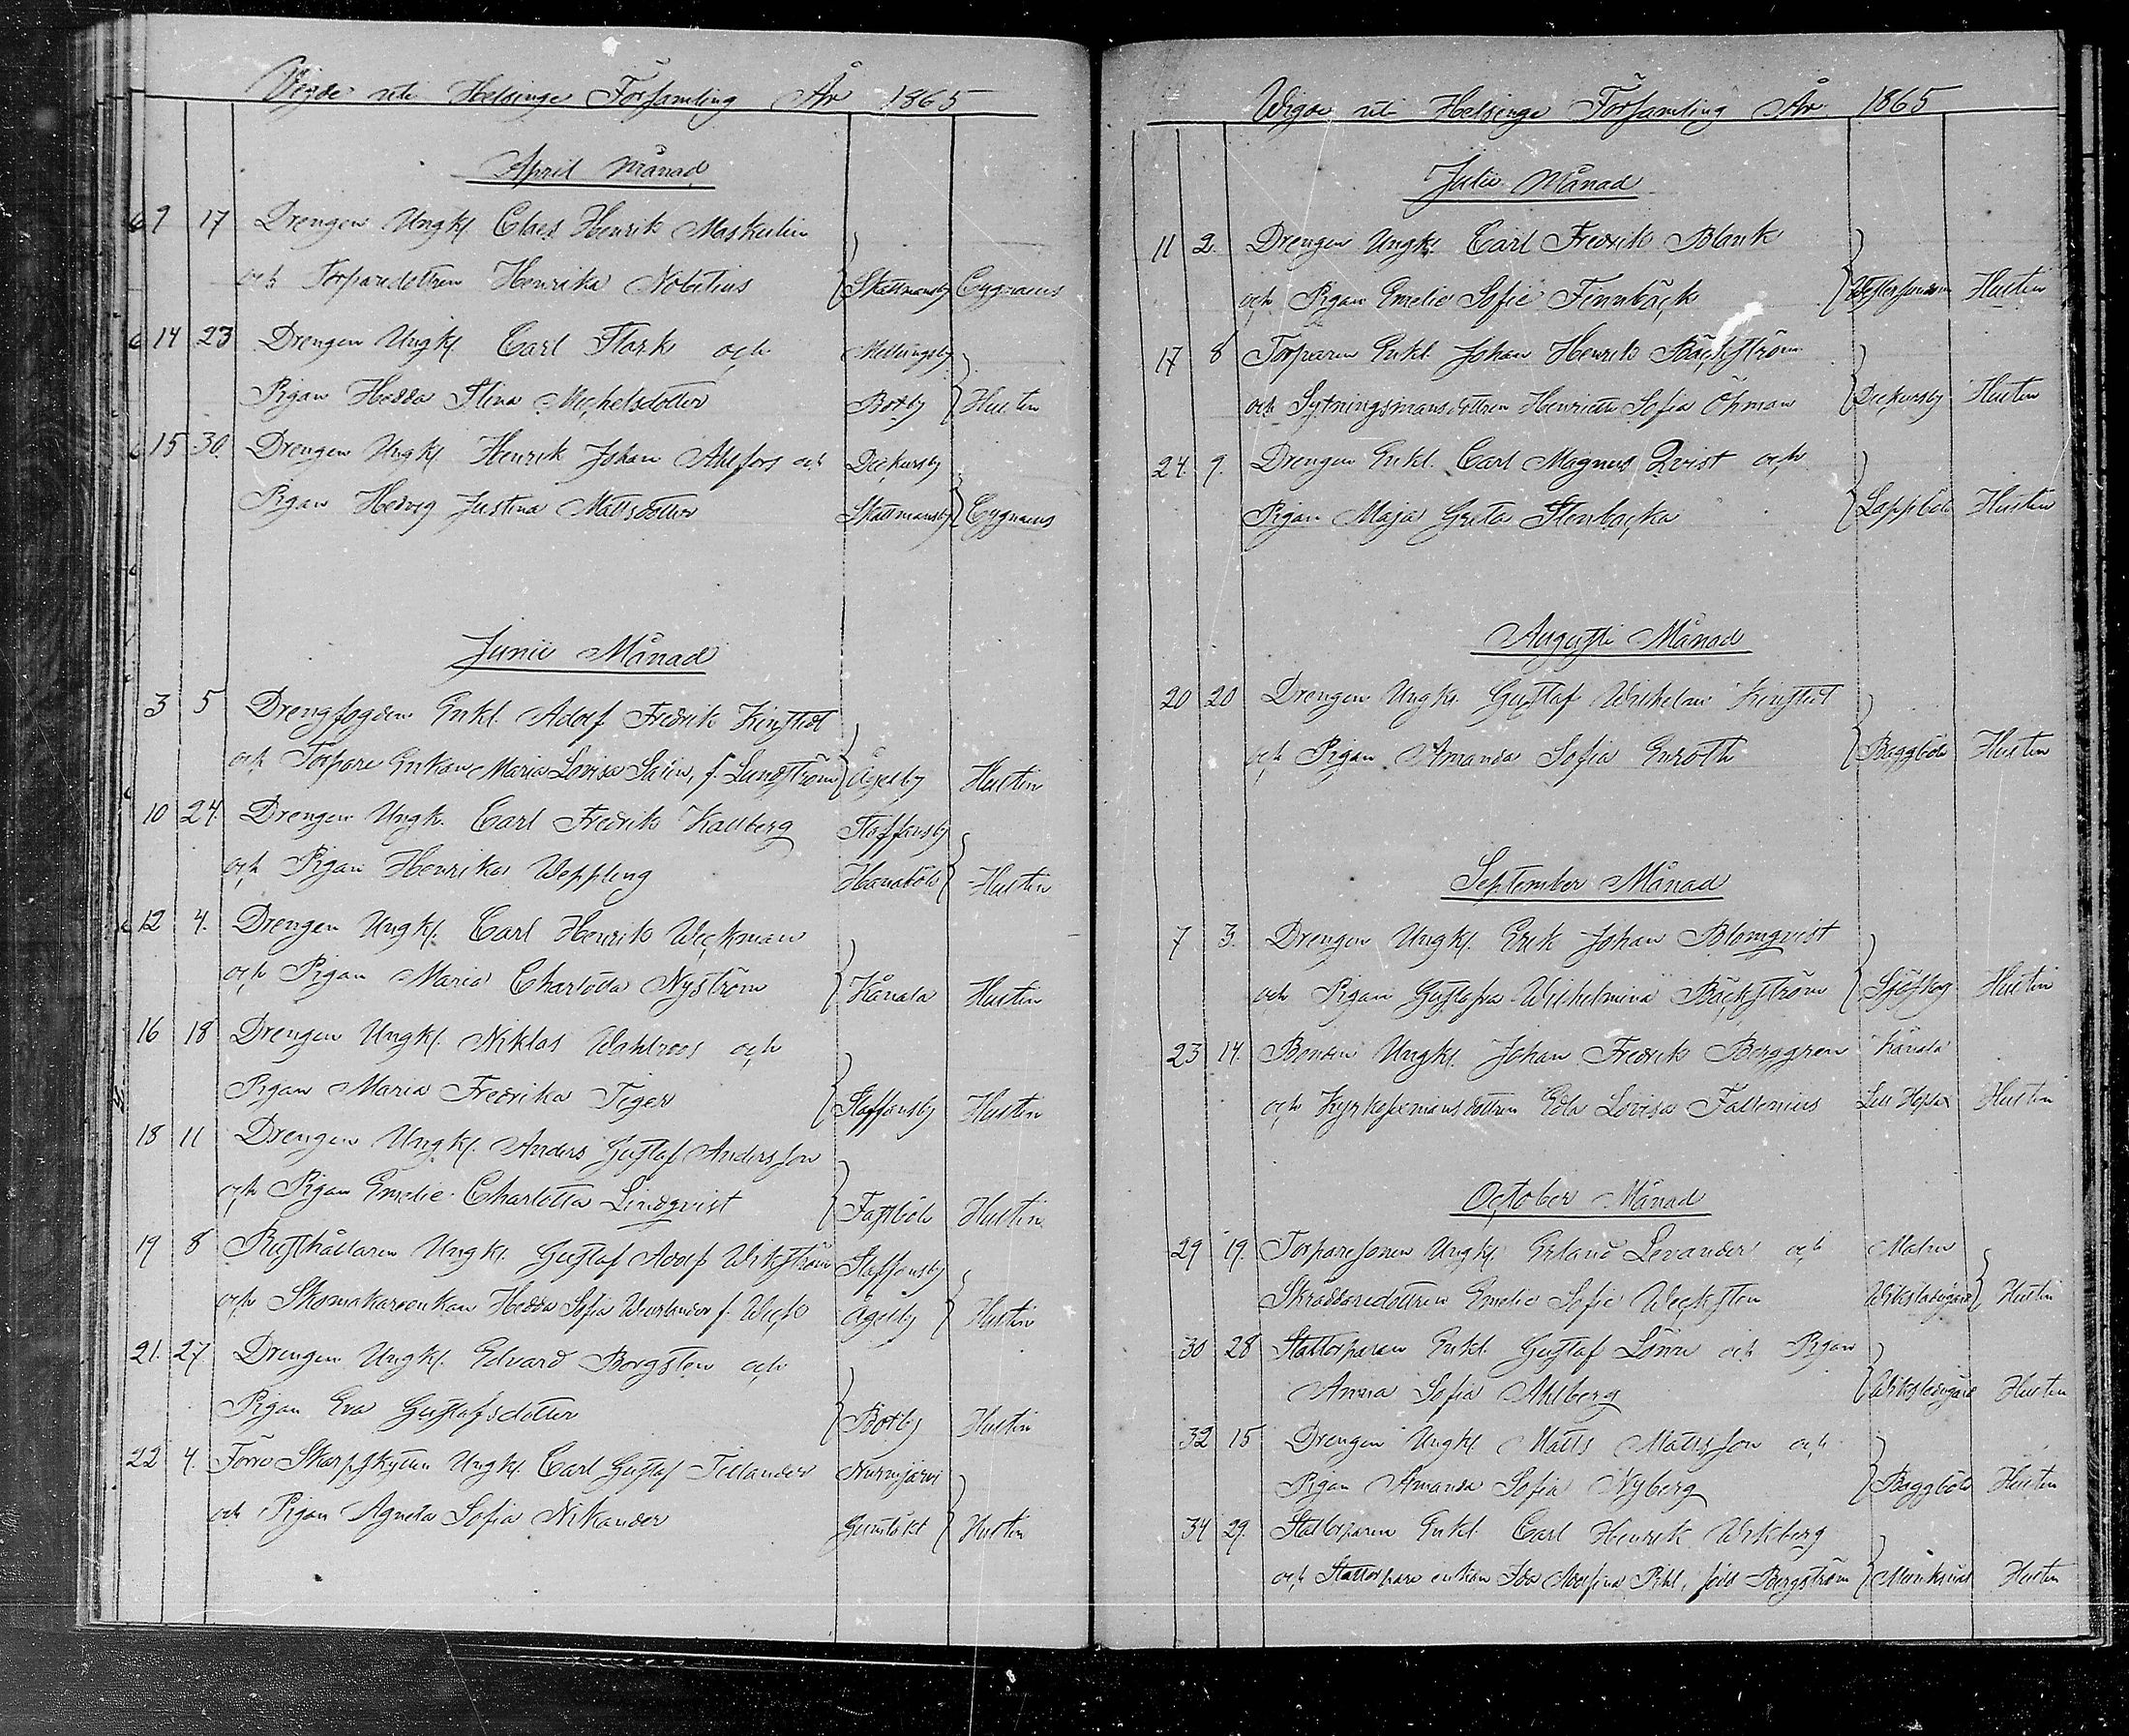 Vigde uti Helsinge Församling År 1865
April Månad
9 17 Drengen Ungk. Claes Henrik Maskulin
och Torparedottren Henrika Nobelius Skattmansby Cygnæus
14 23 Drengen Ungk. Carl Stark och Mellungsby
Pigan Hedda Stina Michelsdotter Botby Hustin
15 30. Drengen Ungk. Henrik Johan Ahlfors och Dickursby
Pigan Hedvig Justina Mattsdotter Skattmansby Cygnæus
Junii Månad
3 5 Drengfogden Enkl. Adolf Fredrik Kingstedt
och Torpare Enkan Maria Lovisa Sain, f. Lundström Ågelby Hustin
10 24. Drengen Ungk. Carl Fredrik Kallberg Staffansby
och Pigan Henrika Weppling Hanaböle Hustin
12 4. Drengen Ungk. Carl Henrik Weckman
och Pigan Maria Charlotta Nyström Kånala Hustin
16 18 Drengen Ungk. Niklas Wahlroos och
Pigan Maria Fredrika Tiger Staffansby Hustin
18 11 Drengen Ungk. Anders Gustaf Andersson
och Pigan Emelie Charlotta Lindqvist Fastböle Hustin
19 8 Rusthållaren Ungk. Gustaf Adolf Wikström Staffansby
och Skomakareenkan Hedda Sofia f. Weck Ågelby Hustin
21. 27. Drengen Ungk. Edvard Borgsten och
Pigan Eva Gustafsdotter Botby Hustin
22 4. Förre Skarpskytten Ungk. Carl Gustaf Tillander Nurmijärvi
och Pigan Agneta Sofia Nikander Gumtäkt Hustin
Wigde uti Helsinge Församling År 1865
Julii Månad
11 2. Drengen Ungk. Carl Fredrik Blank
och Pigan Emelie Sofie Finnbäck Hustin
17 8 Torparen Enkl. Johan Henrik Bäckström
och Sytningsmansdottren Henrietta Sofia Öhman Dickursby Hustin
24. 9. Drengen Enkl. Carl Magnus Qvist och
Pigan Maja Greta Stenbacka Lappböle Hustin
Augusti Månad
20 20 Drengen Ungk. Gustaf Wilhelm Kingstedt
och Pigan Amanda Sofia Enroth Baggböle Hustin
September Månad
7 3. Drengen Ungk. Erik Johan Blomqvist
och Pigan Gustafva Wilhelmina Bäckström Sjöskog Hustin
23 14. Bonden Ungk. Johan Fredrik Berggren Kånala
och Kyrkosexmansdottren Eda Lovisa Fallenius Lill Hoplax Hustin
October Månad
29 19. Torparesonen Ungk. Erland Levander och Malm
Skräddaredottren Emelie Sofie Wecksten Wiksladugård Hustin
30 28 Stattorparen Enkl. Gustaf Lönn och Pigan
Anna Sofia Ahlberg Wiksladugård Hustin
32 15 Drengen Ungk. Matts Mattsson och
Pigan Amanda Sofia Nyberg Baggböle Hustin
34 29. Stattorparen Enkl. Carl Henrik Wikberg
och Stattorpare enkan Ida Adolfina Pihl, född Bergström Munksnäs Hustin